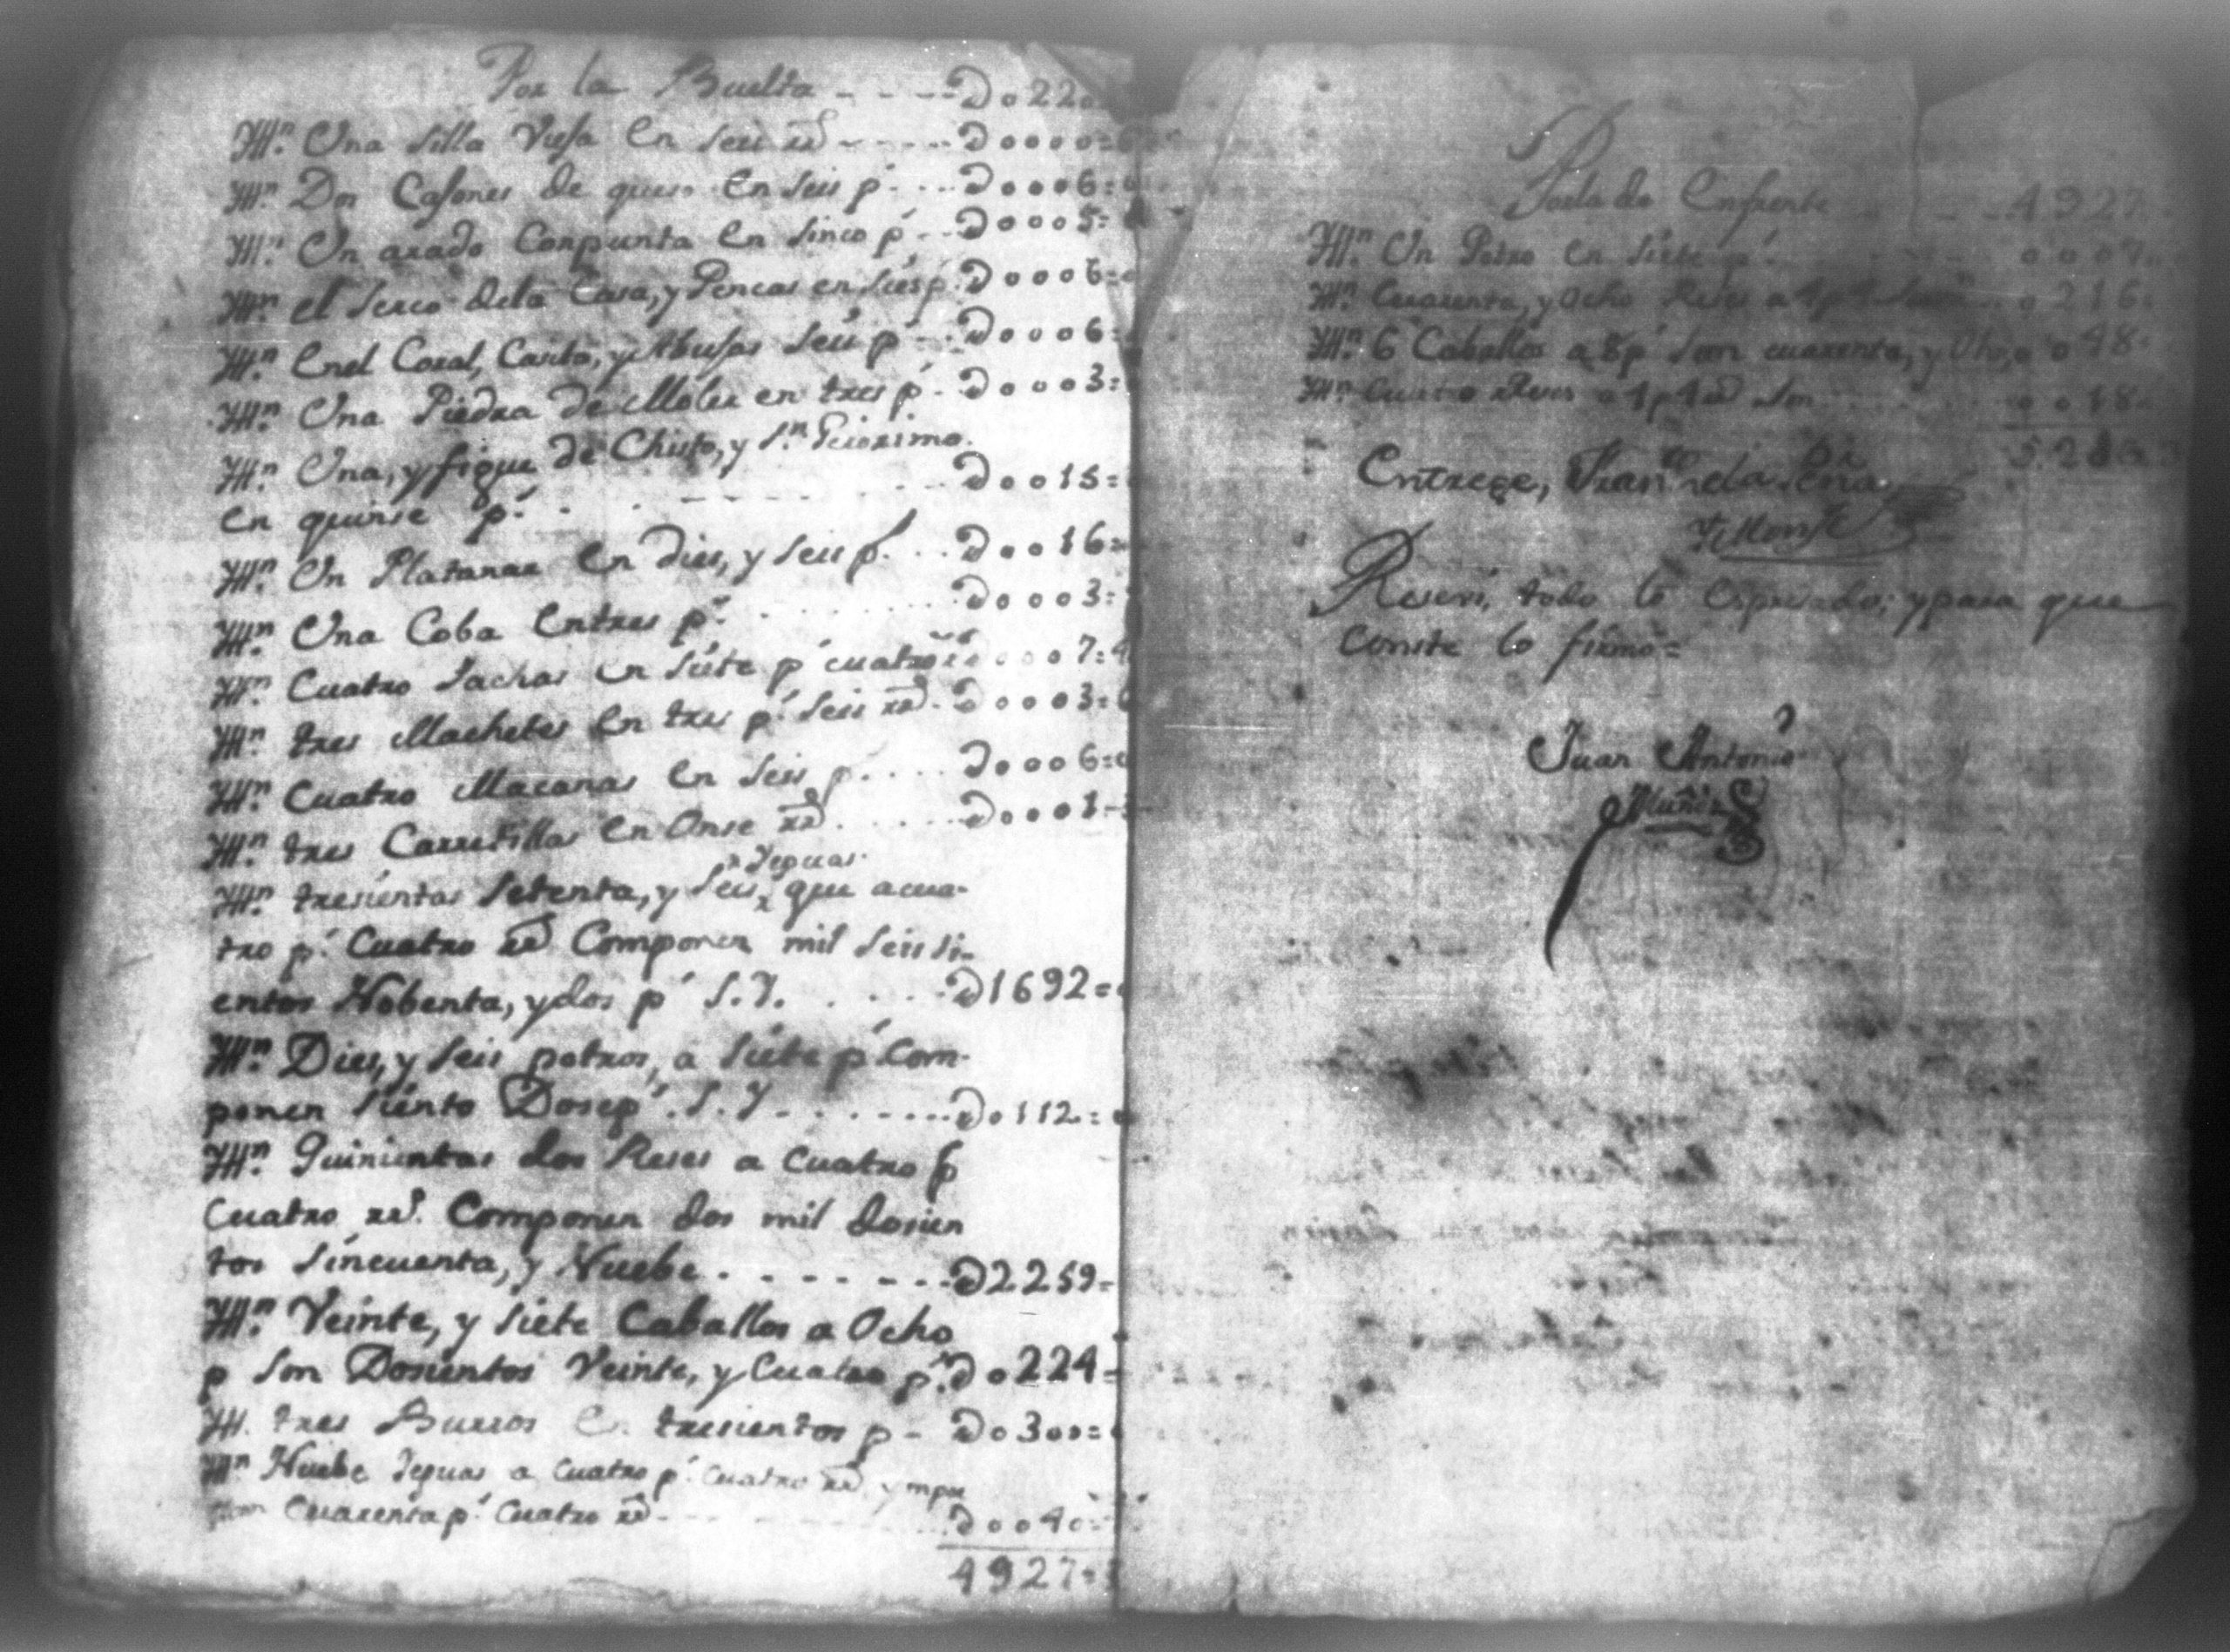 Por la Buelta - - - - D o 22
Yttn. Una silla Viesa en seis rs - - - - D o o o o =
Yttn. Dos Casones de queso en seis ps. - - D o o o 6 =
Yttn. Un arado Conpunta en Sinco ps. - - D o o o 5 =
Yttn. el serco dela Casa, y Pencas en seis ps. D o o o 6 =
Yttn. Enel Coral, y seis ps - - D o o o 6 =
Yttn. Una Piedra de Moler en tres ps - D o o o 3 =
Yttn. Una, y figue de Christo, y Sn. Geronimo.
en quinse ps. - - - - - D o o 15 =
Yttn. Un Platanar en dies, y seis ps. - - D o o 16 =
Yttn. Una Coba Entres ps. - - - - D o o o 3 =
Yttn. Cuatro Jachas en siete ps cuatro rs o o o 7 = 4
Yttn. tres Machetes en tres ps. seis rs. - D o o o 3 = 6
Yttn. Cuatro Macanas en seis ps. - - - D o o o 6 = o
Yttn. tres Carretillas en Onse rs. - - - D o o o 1 -
Yeguas
Yttn. tresientas setenta, y seis, que acua-
tro ps. Cuatro rs Componen mil seis si-
entos Nobenta, y dos ps S. Y. - - - D 1692 =
Yttn. Dies, y seis potros, a siete ps Com-
ponen siento Dose ps. S. Y - - - - D o 112 =
Yttn. Quinientas dos Reses a Cuatro ps
Cuatro rs. Componen dos mil dosien
tos sincuenta, y Nuebe. - - - - - D 2259 -
Yttn. Veinte, y siete Caballos a Ocho
p son Dosientos Veinte, y Cuatro ps. D o 224 =
Ytt. tres Burros en tresientos p - D o 3 o o =
Yttn Nuebe Yeguas a Cuatro ps. Cuatro rs, y
Cuarenta ps. Cuatro rs - - - - D o o 4 o =
4927 =
Porla de Enfrente - - 4927
Yttn. Un Potro en siete ps. - - - o o o 7
Yttn. Cuarenta, y Ocho Reses a 4 p 4 o 216
Yttn. 6 Caballos a 8 ps son cuarenta, y Ocho, o o 48
Yttn. Cuatro Reses a 4 p 4 rs son - - o o 18
5.216
Entrege, Franco. de la Peña,
y Monse
Reseví, todo lo Espresado; y para que
Conste lo firmo =
Juan Antonio
Muñoz